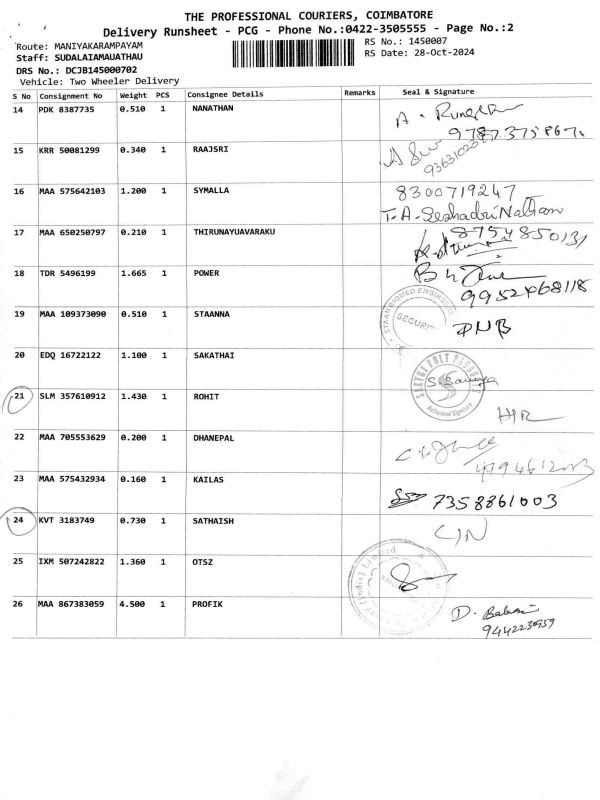 THE PROFESSIONAL COURIERS, COIMBATORE
Delivery Runsheet - PCG - Phone No.:0422-3505555 - Page No.:2
Route: MANIYAKARAMPAYAM
RS No.: 1450007
Staff: SUDALAIAMAUATHAU
RS Date: 28-Oct-2024
DRS No.: DCJB145000702
Vehicle: Two Wheeler Delivery
S No Consignment No Weight PCS Consignee Details Remarks Seal & Signature
14 PDK 8387735 0.510 1 NANATHAN
15 KRR 50081299 0.340 1 RAAJSRI
16 MAA 575642103 1.200 1 SYMALLA 8300719247
T.A. Seshadri Nathan
17 MAA 650250797 0.210 1 THIRUNAYUAVARAKU 8754850131
18 TDR 5496199 1.665 1 POWER
9952468118
19 MAA 109373090 0.510 1 STAANNA SECURITY
20 EDQ 16722122 1.100 1 SAKATHAI
Authorized Signatory
21 SLM 357610912 1.430 1 ROHIT
22 MAA 705553629 0.200 1 DHANEPAL
23 MAA 575432934 0.160 1 KAILAS 7358861003
24 KVT 3183749 0.730 1 SATHAISH
25 IXM 507242822 1.360 1 OTSZ
26 MAA 867383059 4.500 1 PROFIK D. Babu